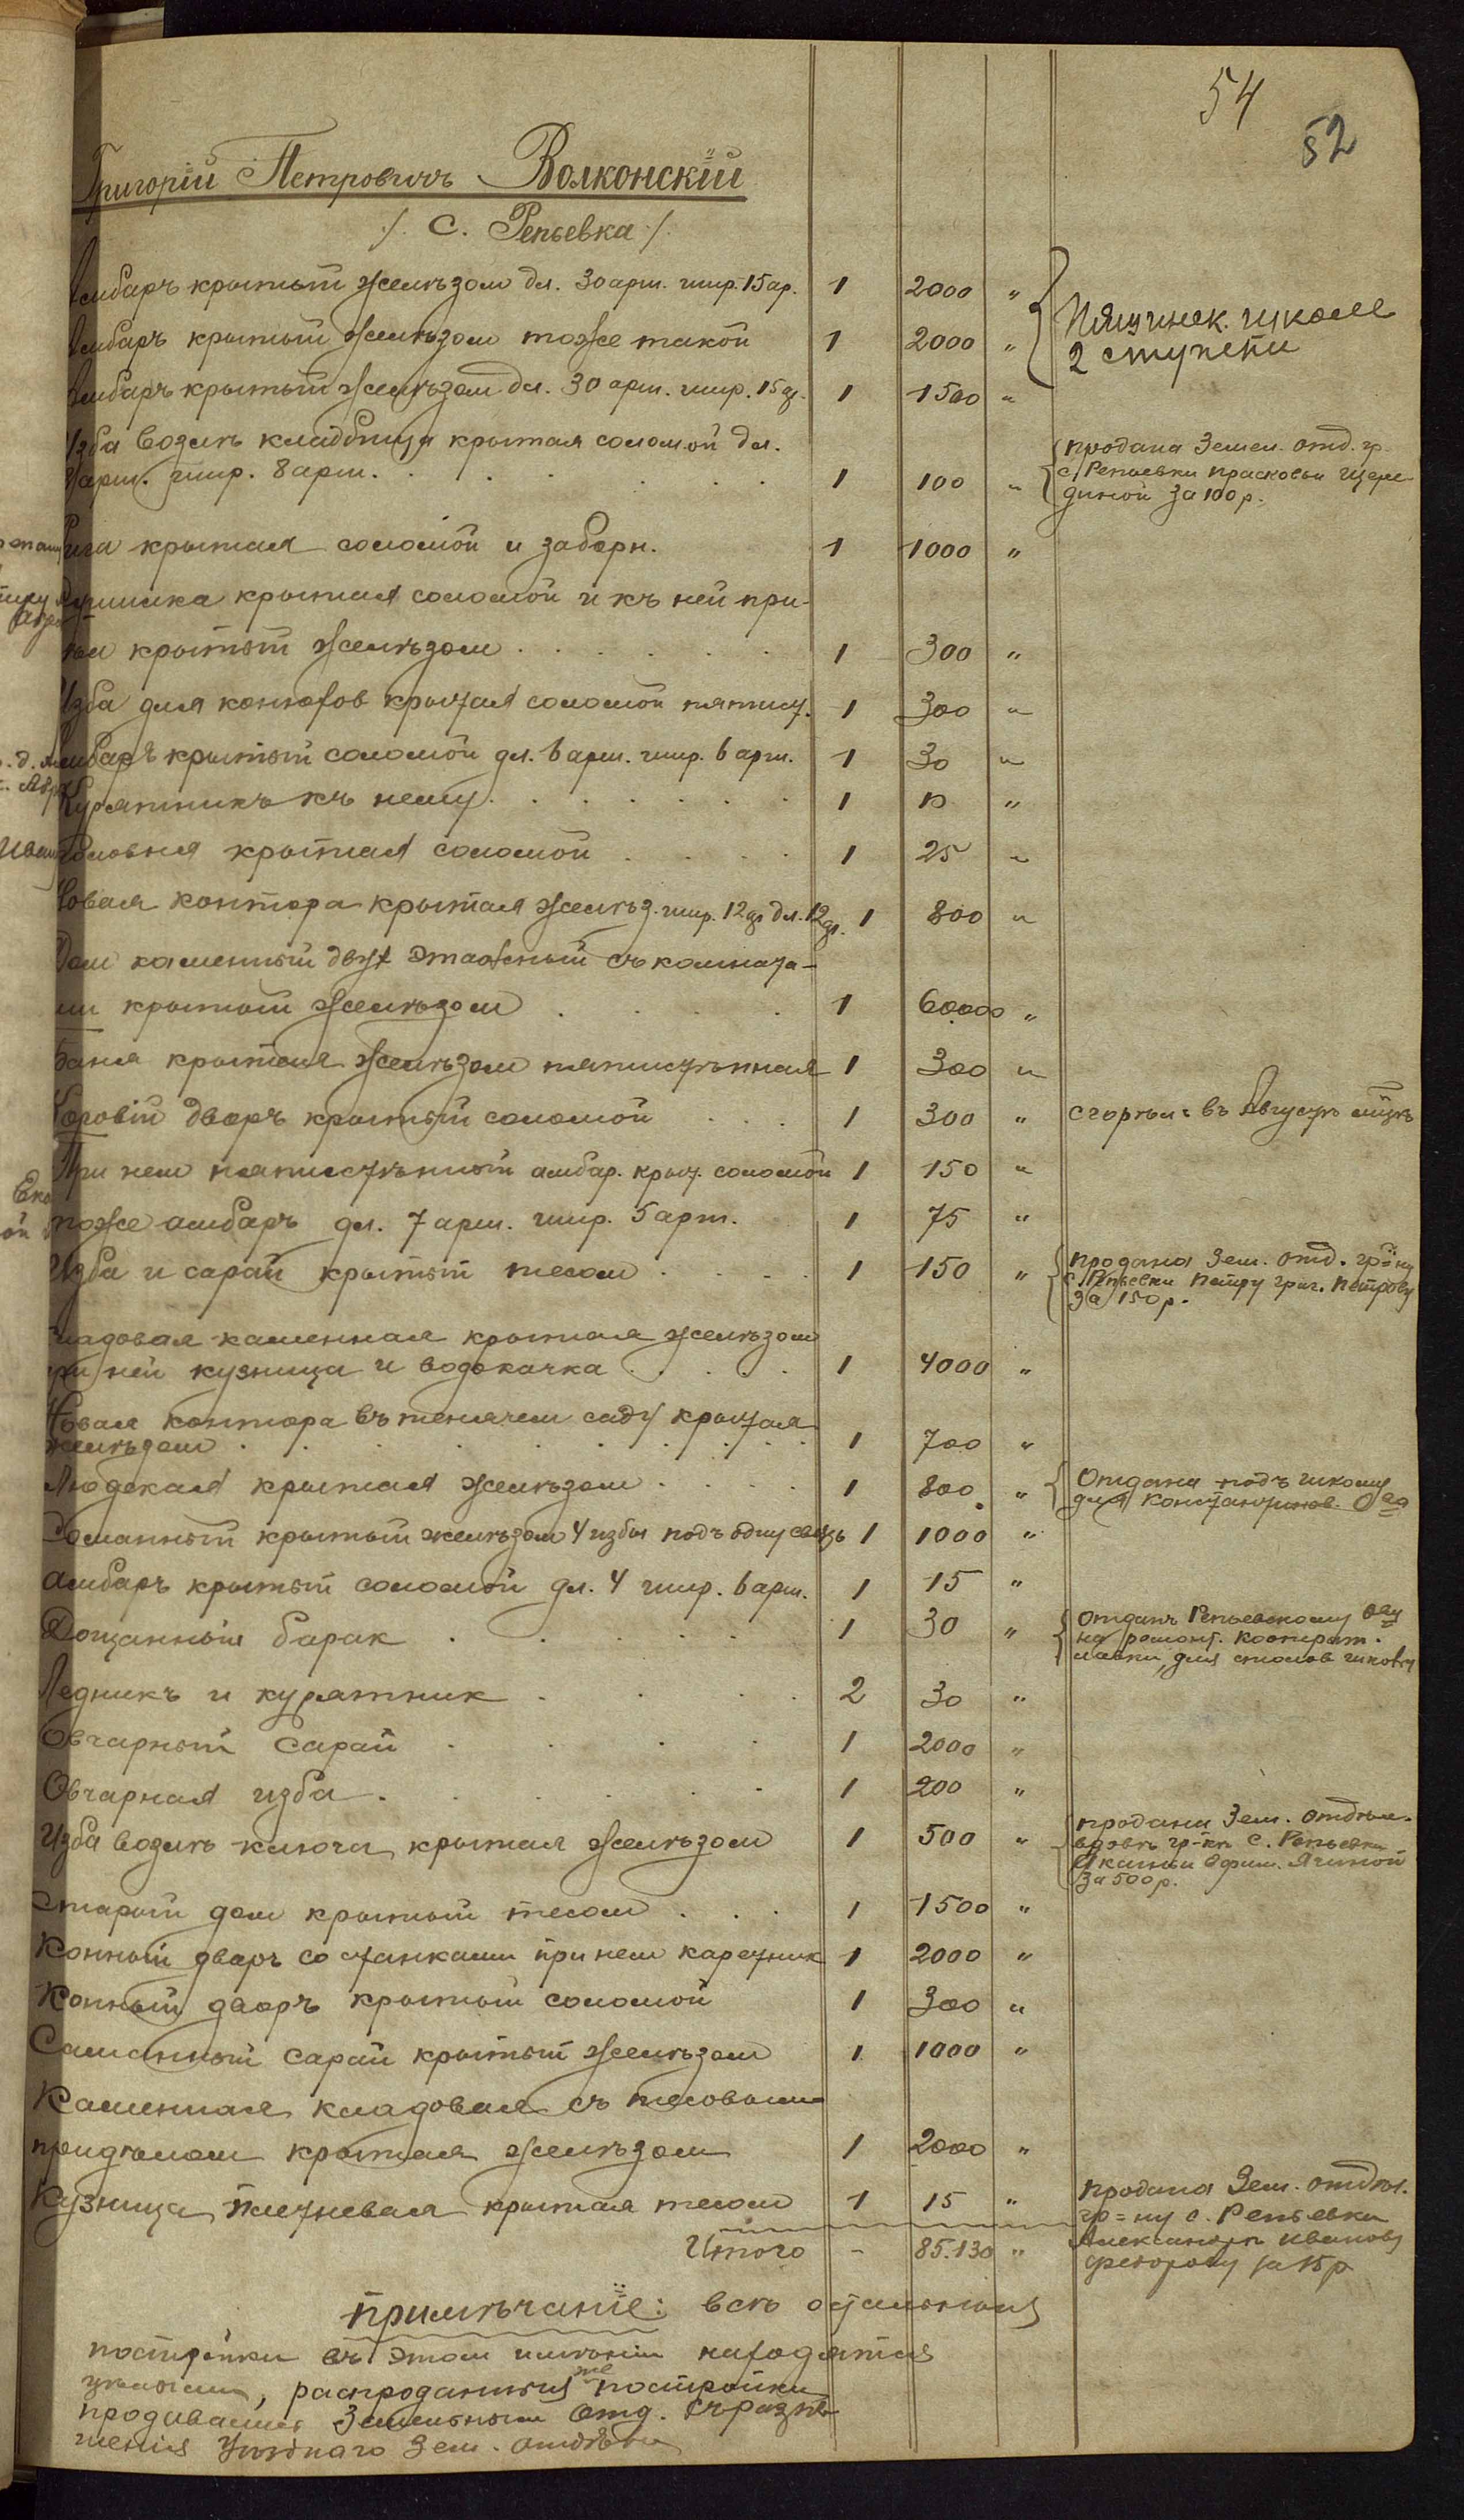 54
52
Григорій Петровичъ Волконскій
/. С. Репьевка /.
Амбаръ крытый желѣзом дл. 30 арш. шир. 15 ар. 1 2000 „
Амбаръ крытый желѣзом тоже такой 1 2000 „
Пятинск. школе
2 ступени
Амбаръ крытый желѣзом дл. 30 арш. шир. 15 ар. 1 1500 „
Изба возлѣ кладбища крытая соломой дл.
арш. шир. 8 арш. 1 100 „
продана Земел. отд. гр.
с. Репьевки Прасковьи
за 100 р.
Рига крытая соломой и заборн. 1 1000 „
крытая соломой и къ ней при-
крытый желѣзом 1 300 „
Изба для конюхов крытая соломой пятист. 1 300 „
Амбаръ крытый соломой дл. 6 арш. шир. 6 арш. 1 30 „
Курятникъ къ нему 1 „
крытая соломой 1 25 „
Новая контора крытая желѣз. шир. 12 ар дл. 12 ар. 1 800 „
Дом каменный двух этажный съ комната-
ми крытый желѣзом 1 60000 „
Баня крытая желѣзом пятистѣнная 1 300 „
Коровій дворъ крытый соломой 1 300 „
сгорѣл въ Августѣ м-цѣ
При нем пятистѣнный амбар. крыт. соломой 1 150 „
тоже амбаръ дл. 7 арш. шир. 5 арш. 1 75 „
Изба и сарай крытый тесом 1 150 „
продана Зем. отд. гр-ну
с. Репьевки Петру Григ. Петрову
за 150 р.
Кладовая каменная крытая желѣзом
при ней кузница и водокачка 1 4000 „
Новая контора въ саду крытая
желѣзом 1 700 „
Людская крытая желѣзом 1 800 „
Отдана подъ школу
для Константинов. О-ва
Саманный крытый желѣзом 4 избы подъ одну связь 1 1000 „
Амбаръ крытый соломой дл. 4 шир. 6 арш. 1 15 „
Дощанный барак 1 30 „
отданъ Репьевскому О-ву
на ремонт. кооперат.
лавки, для столов
Ледникъ и курятник 2 30 „
Овчарный сарай 1 2000 „
Овчарная изба 1 200 „
Изба возлѣ ключа крытая желѣзом 1 500 „
продана Зем. отдѣл.
вдовѣ гр-кѣ с. Репьевки
за 500 р.
Старый дом крытый тесом 1 1500 „
Конный дворъ со станками при нем каретник 1 2000 „
Конный дворъ крытый соломой 1 300 „
Саманный сарай крытый желѣзом 1 1000 „
Каменная кладовая съ тесовым
придѣлом крытая желѣзом 1 2000 „
Кузница плетневая крытая тесом 1 15 „
продана Зем. отдѣл.
гр=ну с. Репьевки
Александръ Иванову
Федорову за 15 р
Итого - 85.130 „
Примѣчаніе: всѣ остальныя
постройки въ этом имѣніи находятся
цѣлыми, распроданныя же постройки
продавались Земельным Отд. съ разрѣ-
шенія Уѣзднаго Зем. отдѣла